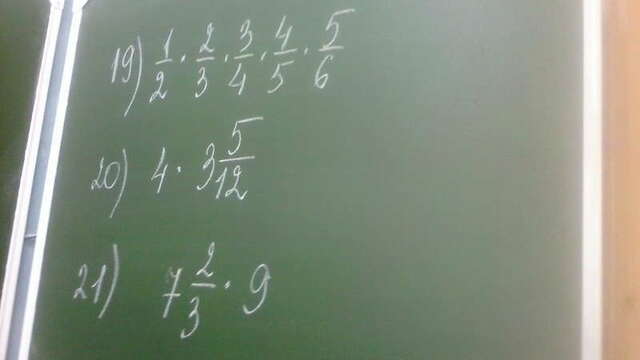 19) 1/2 · 2/3 · 3/4 · 4/5 · 5/6
20) 4 · 3 5/12
21) 7 2/3 · 9